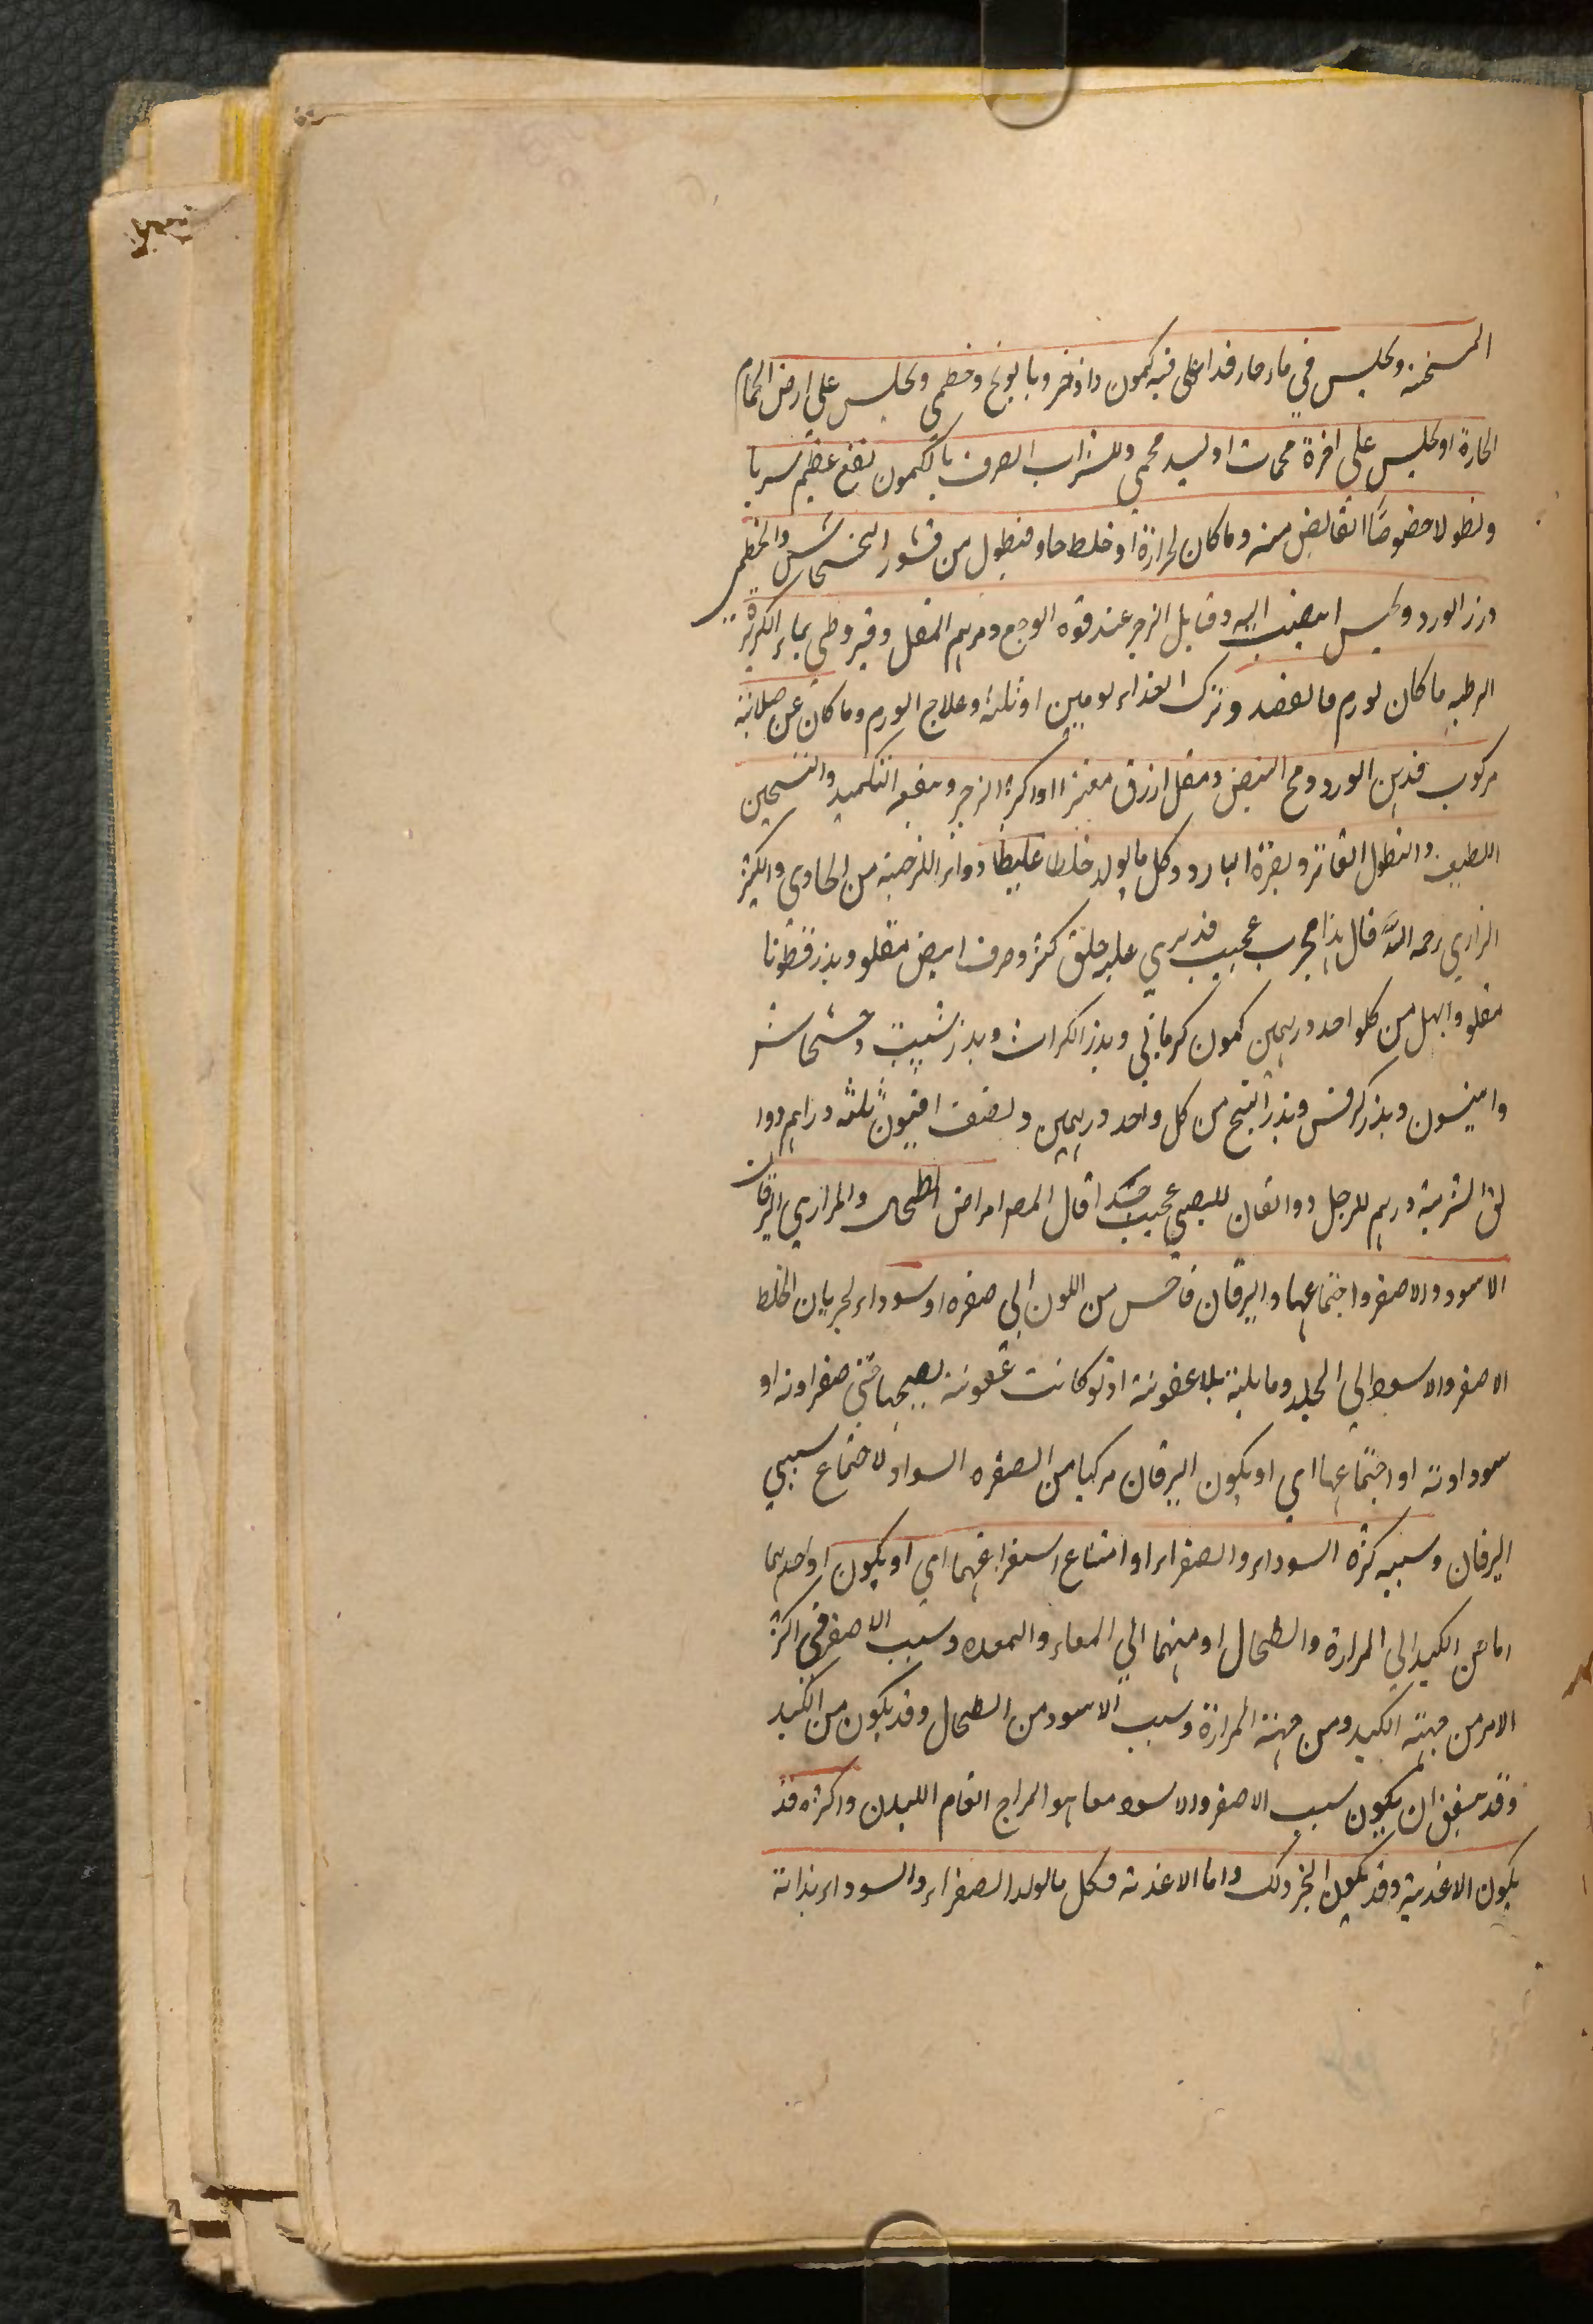 المسخنة ويجلس في ماء حار قد اغلى فيه كمون واذخر وبابونج وخطمي ويجلس على ارض الحمام
الحارة او يجلس على اجرة محمات او لبد محمي وللشراب الصرف بالكمون نفع عظيم شربا
ونطولا خصوصًا القابض منه وما كان لحرارة او خلط حاد فبطول من قشور الخشخاش والخطمي
وزر الورد ويحبس ابيضيب اليه وقابل الزحير عند قوه الوجع ومرهم المقل وقيروطى بماء الكزبرة
الرطبه ما كان لورم فالفصد وترك الغذاء يومين او ثلثة وعلاج الورم وما كان عن صلابة
مركوب فدهن الورد ومح البيض ومقل ازرق مفتر او اكره الزحير وينفعه التكميد والتسخين
اللطيف والنطول الفاتر ويضره البارد وكل ما يولد خلطا غليظا دواء الزحير من الحاوي والكثير
الرازي رحمه الله قال هذا مجرب عجيب قد بري عليه خلق كثير وحرف ابيض مقلو وبذر قطونا
مقلو وابهل من كلواحد درهمين كمون كرماني وبذر الكراث وبذر شبت وخشخاش
وانيسون وبذر كرفس وبذر البنج من كل واحد درهمين ونصف افيون ثلثه دراهم دوا
لق الشربة درهم للرجل دوانقان للصبي عجيب جدا قال المص امراض الطحال والمراري اليرقان
الاسود والاصفر واجتماعهما واليرقان فاحس من اللون الى صفره او سوداء لجريان الخلط
الاصفر والاسود الى الجلد وما يليه بلا عفونة اذ لو كانت عفونة لصحبها حمى صفراوية او
سوداوية او اجتماعهما اي او يكون اليرقان مركبا من الصفره السواد لاجتماع سببي
اليرقان وسببه كثرة السوداء والصفراء او امتناع استفراغهما اي او يكون او احدهما
اما من الكبد الى المرارة والطحال او منهما الى المعاء والمعده وسبب الاصفر في اكثر
الامر من جهة الكبد ومن جهة المرارة وسبب الاسود من الطحال وقد يكون من الكبد
وقد يتفق ان يكون سبب الاصفر والاسود معا هو المزاج العام للبدن واكثره قد
يكون الاغذية وقد يكون لغير ذلك واما الاغذية فكل ما يولد الصفراء والسوداء بذاته